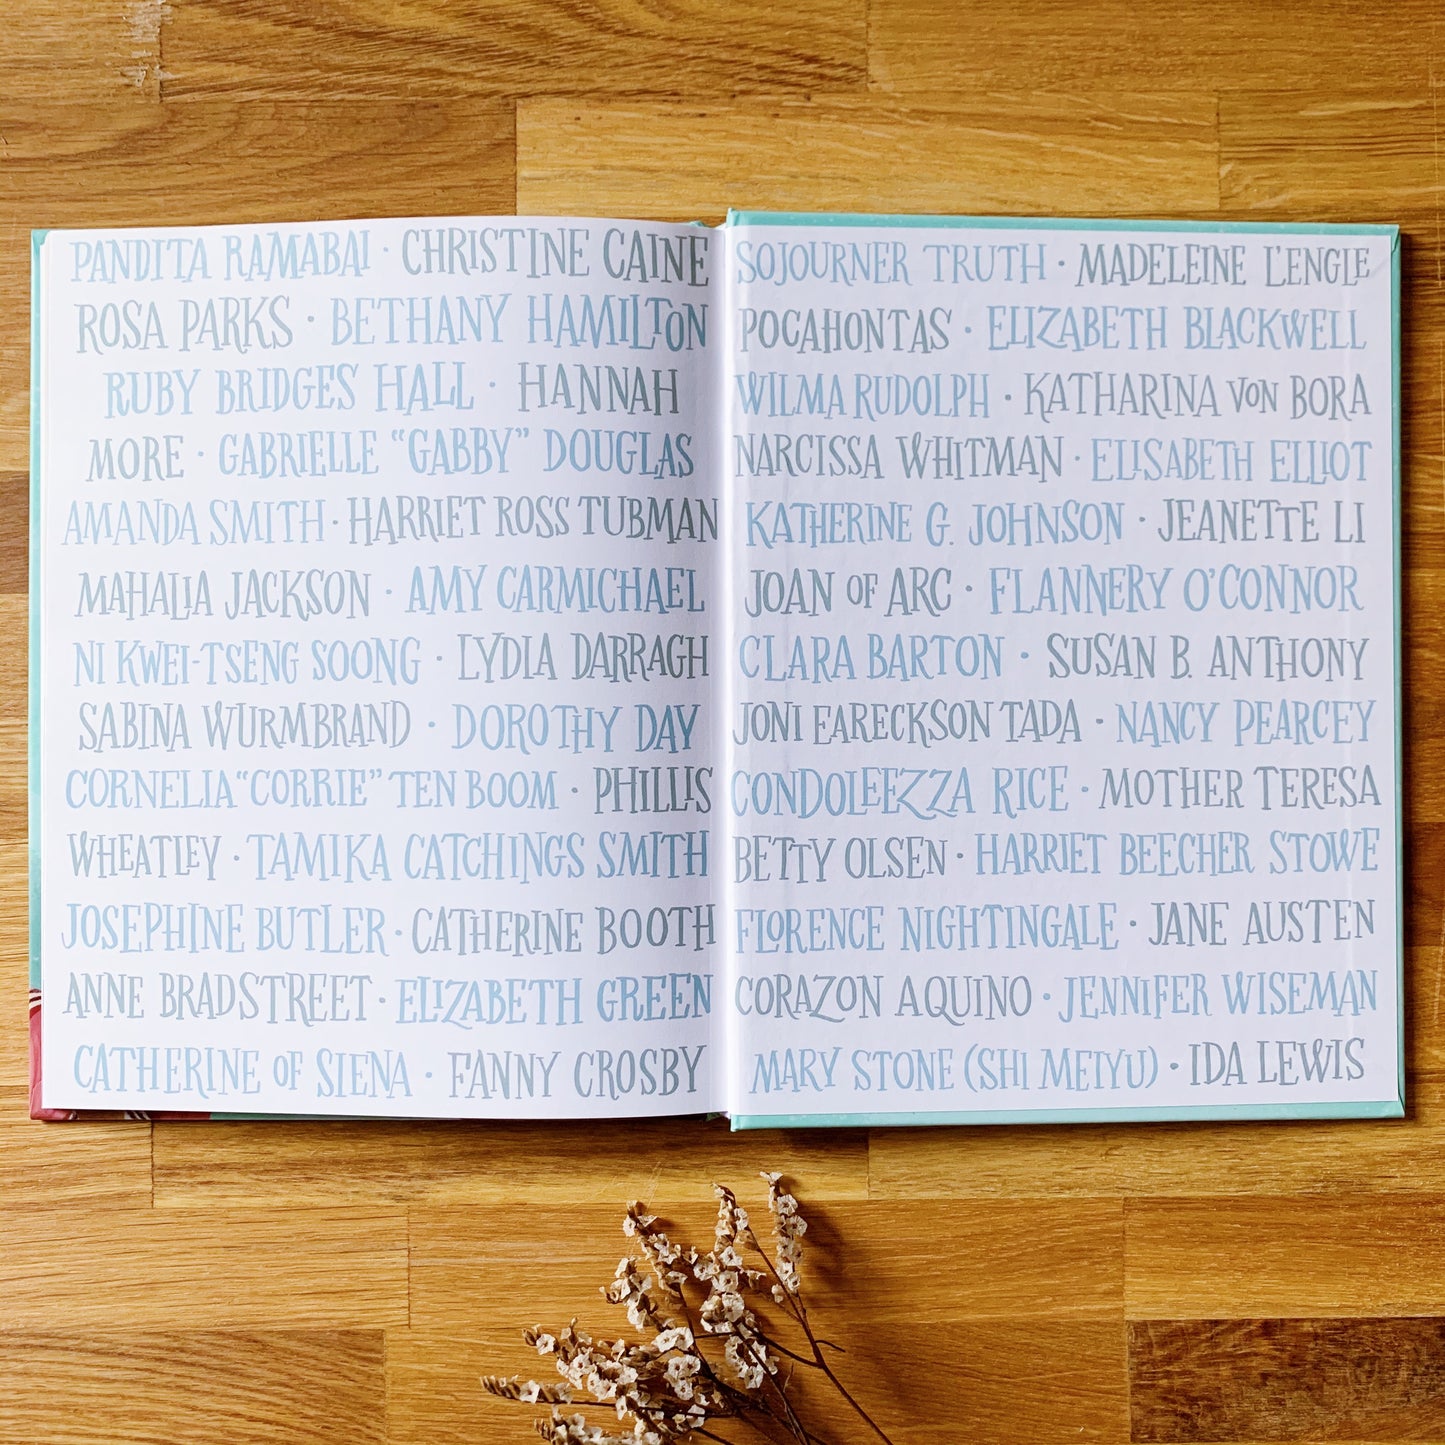 PANDITA RAMABAI · CHRISTINE CAINE
ROSA PARKS · BETHANY HAMILTON
RUBY BRIDGES HALL · HANNAH
MORE · GABRIELLE “GABBY” DOUGLAS
AMANDA SMITH · HARRIET ROSS TUBMAN
MAHALIA JACKSON · AMY CARMICHAEL
NI KWEI-TSENG SOONG · LYDIA DARRAGH
SABINA WURMBRAND · DOROTHY DAY
CORNELIA “CORRIE” TEN BOOM · PHILLIS
WHEATLEY · TAMIKA CATCHINGS SMITH
JOSEPHINE BUTLER · CATHERINE BOOTH
ANNE BRADSTREET · ELIZABETH GREEN
CATHERINE OF SIENA · FANNY CROSBY
SOJOURNER TRUTH · MADELEINE L'ENGLE
POCAHONTAS · ELIZABETH BLACKWELL
WILMA RUDOLPH · KATHARINA VON BORA
NARCISSA WHITMAN · ELISABETH ELLIOT
KATHERINE G. JOHNSON · JEANETTE LI
JOAN OF ARC · FLANNERY O'CONNOR
CLARA BARTON · SUSAN B. ANTHONY
JONI EARECKSON TADA · NANCY PEARCEY
CONDOLEEZZA RICE · MOTHER TERESA
BETTY OLSEN · HARRIET BEECHER STOWE
FLORENCE NIGHTINGALE · JANE AUSTEN
CORAZON AQUINO · JENNIFER WISEMAN
MARY STONE (SHI MEIYU) · IDA LEWIS